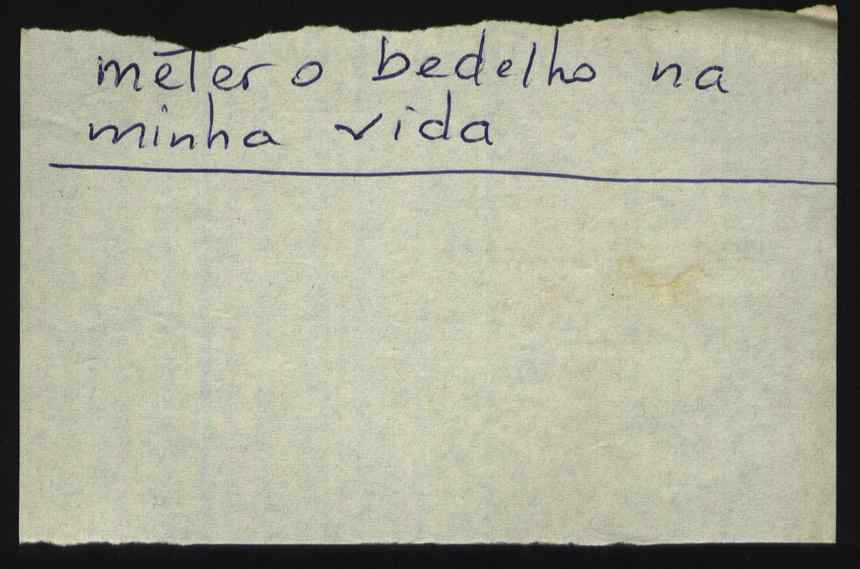 meter o bedelho na
minha vida